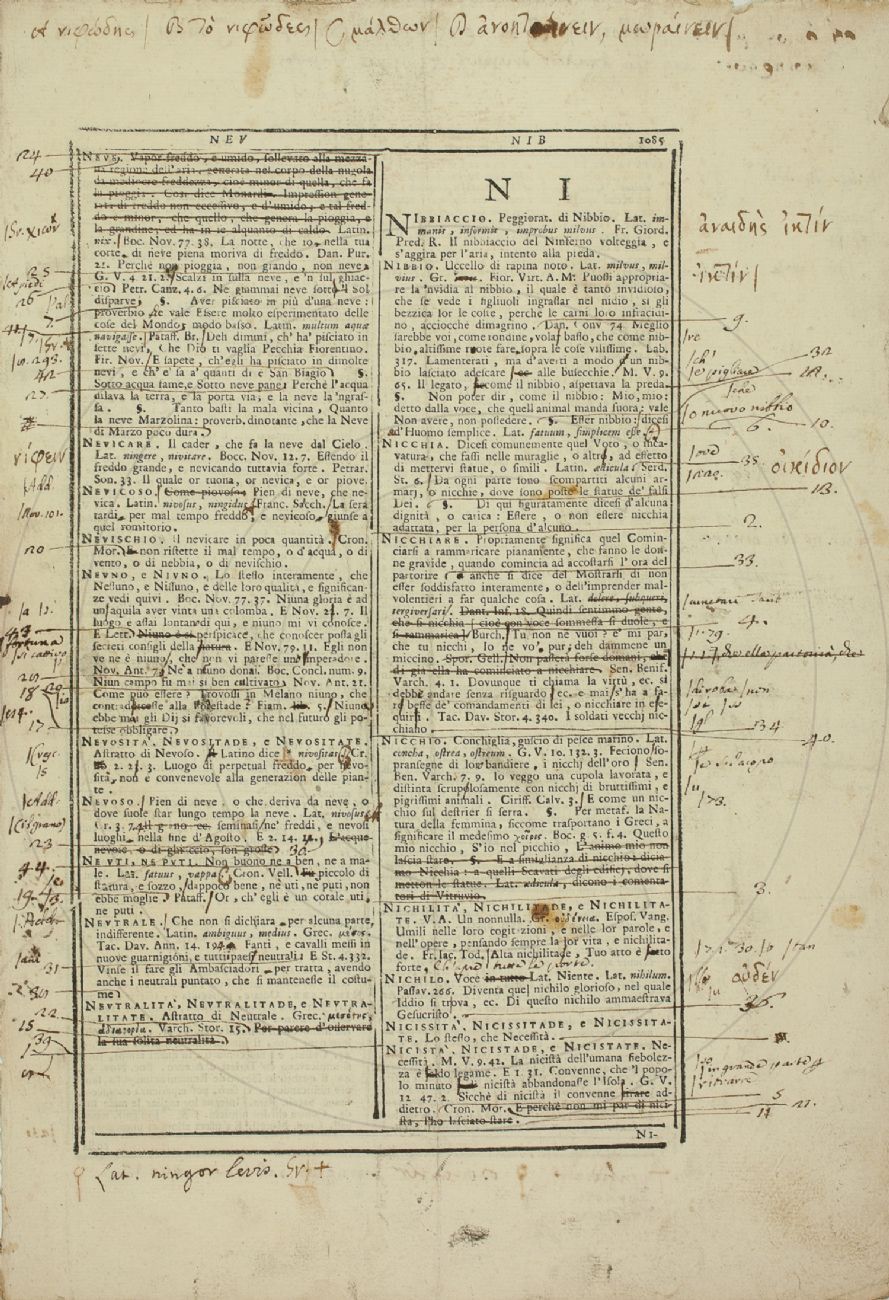 α νιφώδης / B τὸ νιφῶδες / C μάλθων / D ἀνοηταίνειν, μωραίνειν /
NEV
NIB
1085
NEVE. Vapor freddo, e umido, sollevato alla mezza-
na regione dell'aria, generata nel corpo della nugola
da mediocre freddezza, cioè minor di quella, che fa
la pioggia. Così dice Monard. Impression gene-
rata di freddo non eccessivo, e d'umido, e tal fred-
do è minor, che quello, che genera la pioggia, e
la grandine; ed ha in se alquanto di caldo. Latin.
nix. Boc. Nov. 77. 38. La notte, che io nella tua
corte di neve piena moriva di freddo. Dan. Pur.
21. Perché non pioggia, non grando, non neve
G. V. 4 21. 2. Scalzi in sulla neve, e 'n sul ghiac-
cio. Petr. Canz. 4. 6. Ne giammai neve sotto 'l Sol
disparve. §. Aver pisciato in più d'una neve:
proverbio, e vale Essere molto esperimentato delle
cose del Mondo; modo basso. Latin. multum aquae
navigasse. Pataff. Br. Deh dimmi, ch' ha' pisciato in
sette nevi, Che Dio ti vaglia Pecchia Fiorentino.
Fir. Nov. E sapete, s'egli ha pisciato in dimolte
nevi, e ch' e' sa a' quanti dì è San Biagio §.
Sotto acqua fame, e Sotto neve pane: Perchè l'acqua
dilava la terra, e la porta via; e la neve la 'ngraf-
sa. §. Tanto basti la mala vicina, Quanto
la neve Marzolina: proverb. dinotante, che la Neve
di Marzo poco dura.
NEVICARE. Il cader, che fa la neve dal Cielo.
Lat. ningere, nivitare. Bocc. Nov. 12. 7. Essendo il
freddo grande, e nevicando tuttavia forte. Petrar.
Son. 33. Il qual or tuona, or nevica, e or piove.
NEVICOSO. Come piovoso: Pien di neve, che ne-
vica. Latin. nivosus, ningidus. Franc. Sacch. La sera
tardi, per mal tempo freddo, e nevicoso, giunse a
quel romitorio.
NEVISCHIO. Il nevicare in poca quantità. Cron.
Mor. E non ristette il mal tempo, o d'acqua, o di
vento, o di nebbia, o di nevischio.
NEVNO, e NIVNO. Lo stesso interamente, che
Nessuno, e Nissuno, e delle loro qualità, e significan-
ze vedi quivi. Boc. Nov. 77. 37. Niuna gloria è ad
un'aquila aver vinta una colomba. E Nov. 21. 7. Il
luogo è assai lontano di qui, e niuno mi vi conosce.
E Lett. Niuno è sì perspicace, che conoscer possa gli
secreti consigli della fattura. E Nov. 79. 11. Egli non
ve ne è niuno, che non vi paresse uno 'mperadore.
Nov. Ant. 7. Nè a niuno donai. Boc. Concl. num. 9.
Niun campo fu mai sì ben cultivato. Nov. Ant. 21.
Come può essere? Trovossi in Melano niuno, che
contradicesse alla Podestade? Fiam. lib. 5. Niuno
ebbe mai gli Dij sì favorevoli, che nel futuro gli po-
tesse obbligare.
NEVOSITA', NEVOSITADE, e NEVOSITATE.
Astratto di Nevoso. Latino dice nivositas. Cr.
2. 21. 3. Luogo di perpetual freddo, per nevo-
sità, non è convenevole alla generazion delle pian-
te.
NEVOSO. Pien di neve, o che deriva da neve, o
dove suole star lungo tempo la neve. Lat. nivosus.
Cr. 3. 7. Il grano ec. seminasi ne' freddi, e nevosi
luoghi, nella fine d'Agosto. E 2. 14. 11. L'acque
nevose, o di ghiaccio, son grosse.
NEUTI, NE PUTI. Non buono ne a ben, ne a ma-
le. Lat. fatuus, vappa. Cron. Vell. Fu piccolo di
statura, e sozzo, dappoco bene, nè uti, ne puti, non
ebbe moglie. Pataff. Or, ch' egli è un cotale uti,
ne puti.
NEUTRALE. Che non si dichiara per alcuna parte,
indifferente. Latin. ambiguus, medius. Grec. μέσος.
Tac. Dav. Ann. 14. 194. Fanti, e cavalli messi in
nuove guarnigioni, e tutti paesi neutrali. E St. 4. 332.
Vinse il fare gli Ambasciadori per tratta, avendo
anche i neutrali puntato, che si mantenesse il costu-
me.
NEVTRALITÀ, NEVTRALITADE, e NEVTRA-
LITATE. Astratto di Neutrale. Grec. μεσότης,
ἀδιαφορία. Varch. Stor. 15. Per parere d'osservare
la sua solita neutralità.
N I
NIBBIACCIO. Peggiorat. di Nibbio. Lat. im-
manis, informis, improbus milvus. Fr. Giord.
Pred. R. Il nibbiaccio del Ninferno volteggia, e
s'aggira per l'aria, intento alla preda.
NIBBIO. Uccello di rapina noto. Lat. milvus, mil-
vius. Gr. Fior. Virt. A. M. Puossi appropria-
re la 'nvidia al nibbio, il quale è tanto invidioso,
che se vede i figliuoli ingrassar nel nidio, sì gli
bezzica lor le coste, perchè le carni loro infracidi-
no, acciocchè dimagrino. Dan. Conv 74. Meglio
sarebbe voi, come rondine, volar basso, che come nib-
bio, altissime ruote fare, sopra le cose vilissime. Lab.
317. Lamenterati, ma d'averti a modo d'un nib-
bio lasciato adescare alle busecchie. M. V. 9.
65. Il legato, come il nibbio, aspettava la preda.
§. Non poter dir, come il nibbio: Mio, mio:
detto dalla voce, che quell'animal manda fuora: vale
Non avere, non possedere. §. Esser nibbio: dicesi
d'Huomo semplice. Lat. fatuum, simplicem esse.
NICCHIA. Dicesi comunemente quel Voto, o Inca-
vatura, che fassi nelle muraglie, o altro, ad effetto
di mettervi statue, o simili. Latin. aedicula. Serd.
St. 6. Da ogni parte sono scompartiti alcuni ar-
marj, o nicchie, dove sono poste le statue de' falsi
Dei. §. Di qui figuratamente dicesi d'alcuna
dignità, o carica: Essere, o non essere nicchia
adattata, per la persona d'alcuno.
NICCHIARE. Propriamente significa quel Comin-
ciarsi a rammaricare pianamente, che fanno le don-
ne gravide, quando comincia ad accostarsi l'ora del
partorire; e anche si dice del Mostrarsi di non
esser soddisfatto interamente, o dell'imprender mal-
volentieri a far qualche cosa. Lat. dolere, subqueri,
tergiversari. Dant. Inf. 18. Quindi sentimmo gente,
che si nicchia (cioè con voce sommessa si duole, e
si rammarica) Burch. Tu non ne vuoi? e' mi par,
che tu nicchi, Io ne vo' pur; deh dammene un
miccino. Spor. Gell. Non passerà forse domani, che
di già ella ha cominciato a nicchiare. Sen. Benif.
Varch. 4. 1. Dovunque ti chiama la virtù, ec. si
debbe andare senza risguardo, ec. e mai s'ha a fa-
re beffe de' comandamenti di lei, o nicchiare in ese-
quirli. Tac. Dav. Stor. 4. 340. I soldati vecchj nic-
chiano.
NICCHIO. Conchiglia, guscio di pesce marino. Lat.
concha, ostrea, ostreum. G. V. 10. 132. 3. Feciono so-
pransegne di lor bandiere, i nicchj dell'oro. Sen.
Ben. Varch. 7. 9. Io veggo una cupola lavorata, e
distinta scrupolosamente con nicchj di bruttissimi, e
pigrissimi animali. Ciriff. Calv. 3. E come un nic-
chio sul destrier si serra. §. Per metaf. la Na-
tura della femmina, siccome trasportano i Greci, a
significare il medesimo χοῖρος. Boc. g. 5. f. 4. Questo
mio nicchio, S'io nol picchio, L'animo mio non
lascia stare. §. E a simiglianza di nicchio: dicia-
mo Nicchia: a quelli Scavati degli edificj, dove si
metton le statue. Lat. aedicula, dicono i comenta-
tori di Vitruvio.
NICHILITÀ, NICHILITADE, e NICHILITA-
TE. V.A. Un nonnulla. Gr. οὐδένεια. Espos. Vang.
Umili nelle loro cogitazioni, e nelle lor parole, e
nell'opere, pensando sempre la lor vita, e nichilita-
de. Fr. Iac. Tod. Alta nichilitade, Tuo atto è tanto
forte,
NICHILO. Voce in tutto Lat. Niente. Lat. nihilum.
Passav. 266. Diventa quel nichilo glorioso, nel quale
Iddio si trova, ec. Di questo nichilo ammaestrava
Gesucristo.
NICISSITÀ, NICISSITADE, e NICISSITA-
TE. Lo stesso, che Necessità.
NICISTÀ, NICISTADE, e NICISTATE. Ne-
cessità. M. V. 9. 42. La nicistà dell'umana fiebolez-
za è saldo legame. E 1. 31. Convenne, che 'l popo-
lo minuto nicistà abbandonasse l'Isola. G. V.
12 47. 2. Sicchè di nicistà il convenne tirare ad-
dietro. Cron. Mor. E perchè non mi par di nici-
stà, l'ho lasciato stare.
NI-
24
40
25
26
7
42
27
νίφειν
20
17
23
31
22
15
39
ἀναιδὴς ἰκτίν
ἰκτίν /
9.
32
pigliare
o nuovo nibbio
6.
10.
38
οἰκίδιον
13.
2.
33.
4.
34
40.
3.
οὐδέν
36.
in grande parte
5
11
21.
Lat. ningor levis. Gr. +